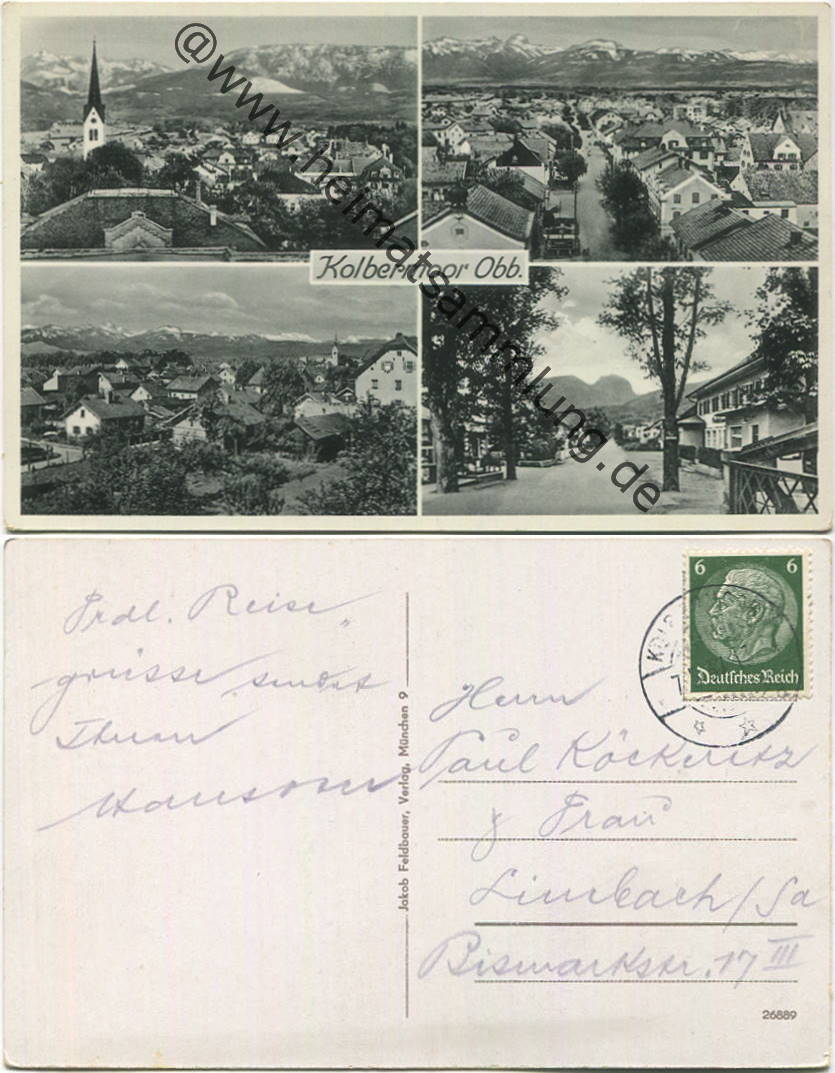 @www.heimatsammlung.de
Kolbermoor Obb.
6 6
Deutsches Reich
Frdl. Reise
grüsse sendet
Ihnen
Jakob Feldbauer, Verlag, München 9
Herrn
Paul Köckritz
Frau
Limbach/Sa
Bismarkstr. 17 III
26889